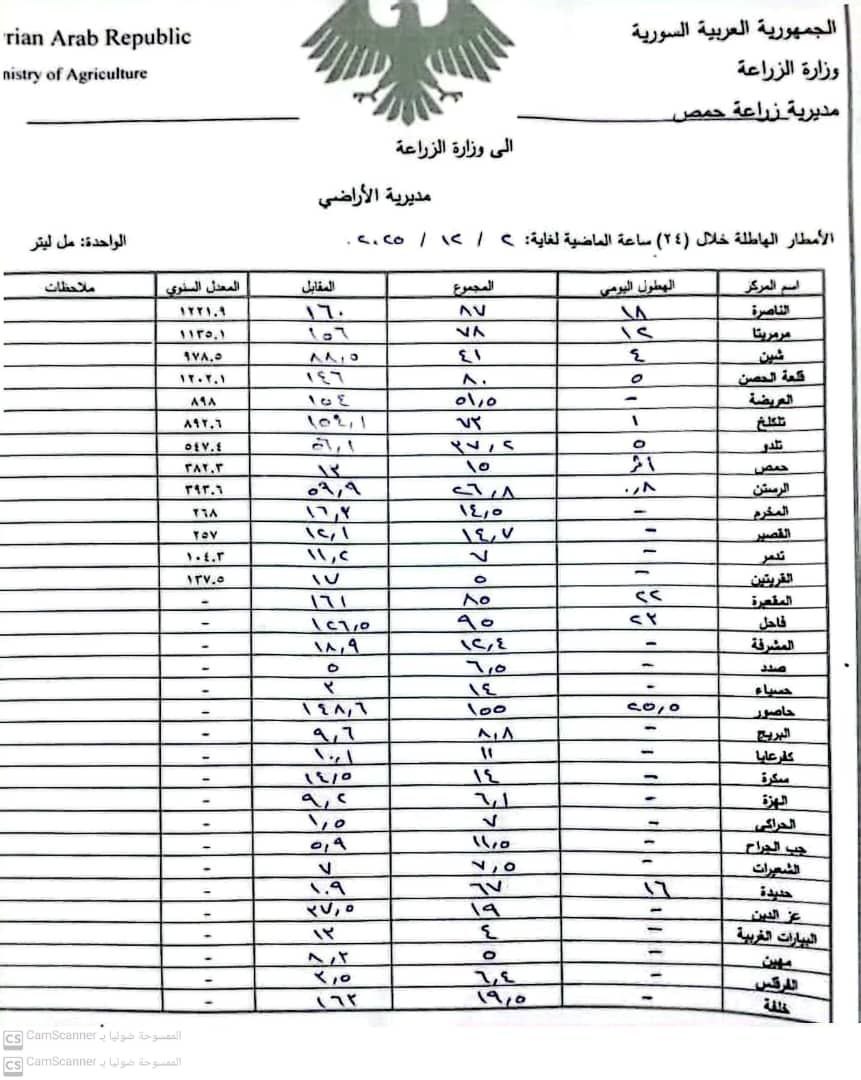 الجمهورية العربية السورية
وزارة الزراعة
مديرية زراعة حمص
rian Arab Republic
nistry of Agriculture
الى وزارة الزراعة
مديرية الأراضي
الأمطار الهاطلة خلال (٢٤) ساعة الماضية لغاية: ٢ / ١٢ / ٢٠٢٥. الواحدة: مل ليتر
اسم المركز الهطول اليومي المجموع المقابل المعدل السنوي ملاحظات
الناصرة ١٨ ٨٧ ١٦٠ ١٢٢١.٩
مرمريتا ١٢ ٧٨ ١٥٦ ١١٣٥.١
شين ٤ ٤١ ٨٨,٥ ٩٧٨.٥
قلعة الحصن ٥ ٨٠ ١٤٦ ١٢٠٢.١
العريضة - ٥١,٥ ١٥٤ ٨٩٨
تلكلخ ١ ٧٣ ٨٩٢.٦
تلدو ٥ ٣٧,٢ ٥٦,١ ٥٤٧.٤
حمص أثر ١٥ ١٣ ٣٨٢.٣
الرستن ٠,٨ ٢٦,٨ ٥٩,٩ ٣٩٣.٦
المخرم - ١٤,٥ ١٦,٣ ٢٦٨
القصير - ١٤,٧ ١٢,١ ٢٥٧
تدمر - ٧ ١١,٢ ١٠٤.٣
القريتين - ٥ ١٧ ١٣٧.٥
المقعبرة ٢٢ ٨٥ ١٦١ -
فاحل ٢٣ ٩٥ ١٢٦,٥ -
المشرفة - ١٢,٤ ١٨,٩ -
صدد - ٦,٥ ٥ -
حسياء - ١٤ ٣ -
حاصور ٢٥,٥ ١٥٥ ١٤٨,٦ -
البريج - ٨,٨ ٩,٦ -
كفرعايا - ١١ ١٠,١ -
سكرة - ١٤ ١٤,٥ -
الهزة - ٦,١ ٩,٢ -
الحراكي - ٧ ١,٥ -
جب الجراح - ١١,٥ ٥,٩ -
الشعيرات - ٧,٥ ٧ -
حديدة ١٦ ٦٧ ١٠٩ -
عز الدين - ١٩ ٣٧,٥ -
البيارات الغربية - ٤ ١٣ -
مهين - ٥ ٨,٣ -
الفرقلس - ٦,٤ ٣,٥ -
خلفة - ١٩,٥ ١٦٣ -
CS CamScanner الممسوحة ضوئيا بـ
CS CamScanner الممسوحة ضوئيا بـ